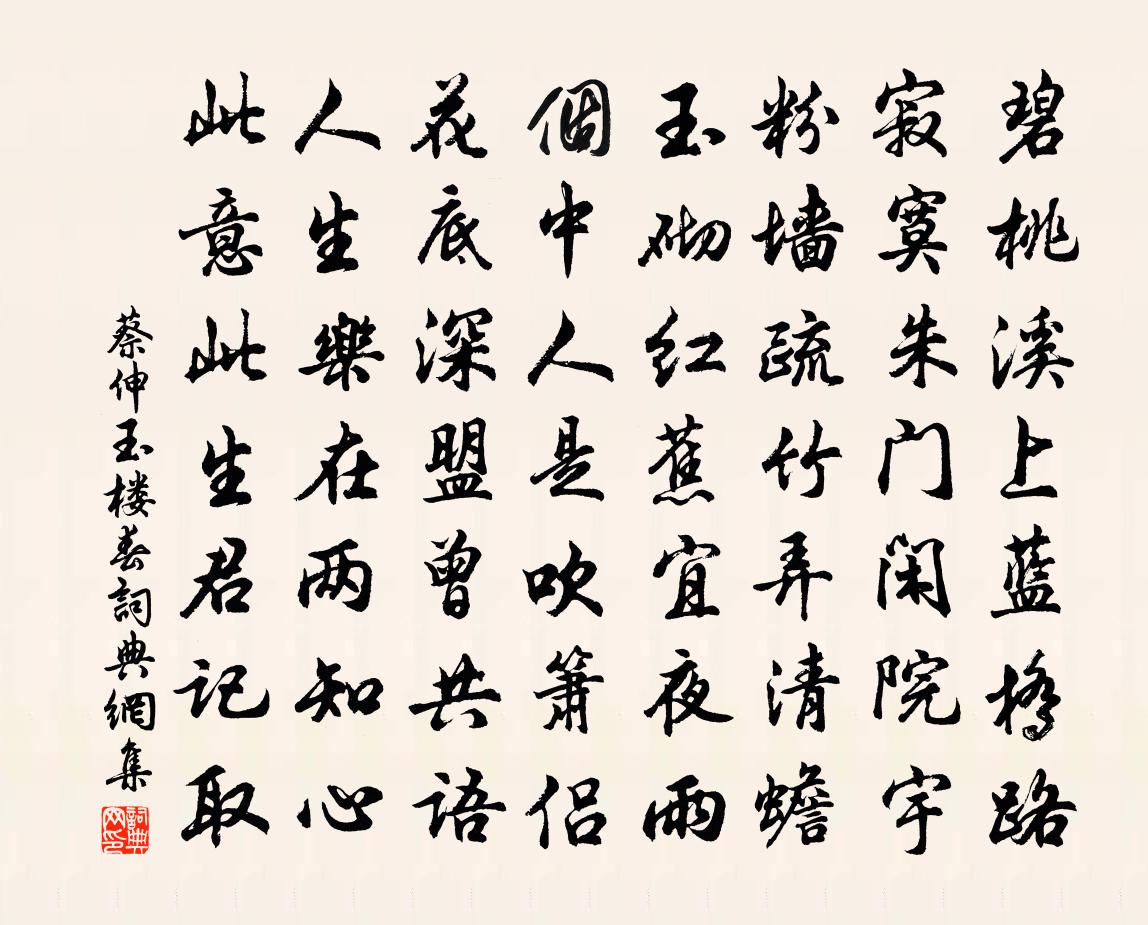 碧桃溪上藍橋路
寂寞朱门闲院宇
粉墙疏竹弄清蟾
玉砌红蕉宜夜雨
個中人是吹簫侣
花底深盟曾共語
人生樂在两知心
此意此生君记取
蔡伸玉楼春詞典網集
詞典网印